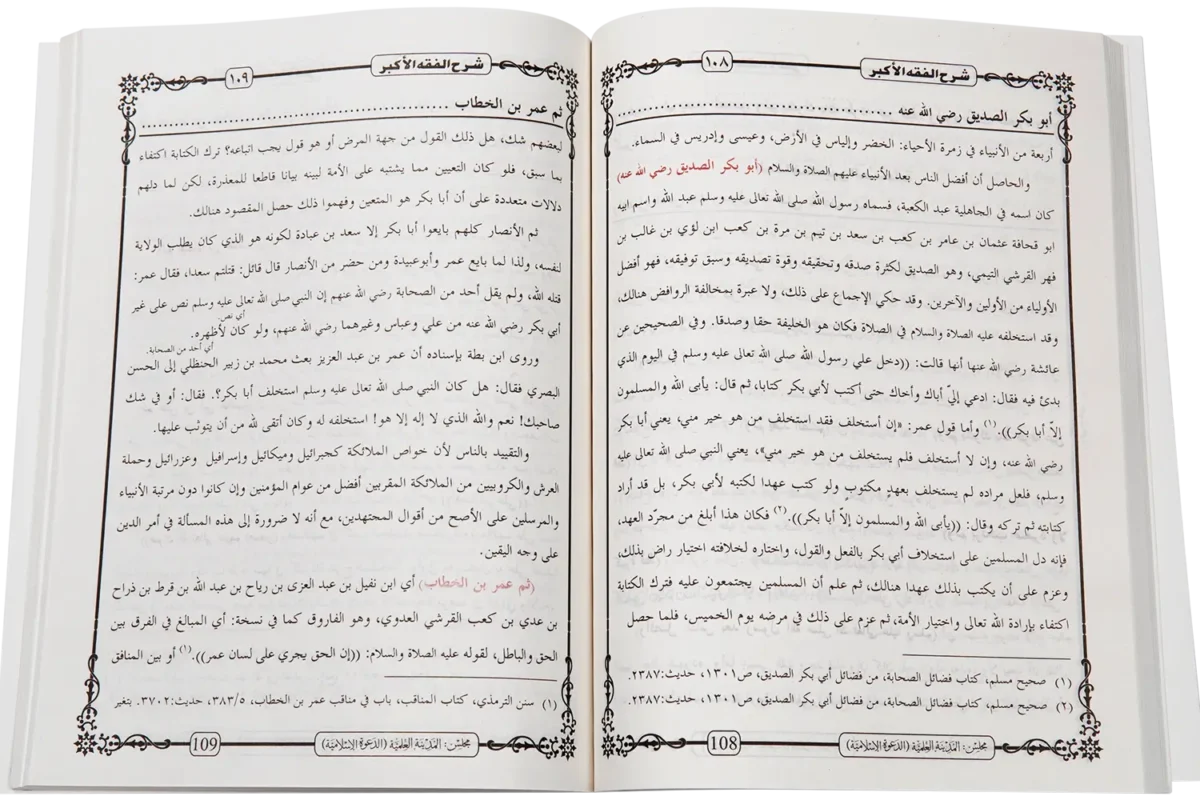 شرح الفقه الأكبر
١٠٨
أبو بكر الصديق رضي الله عنه ........................................
أربعة من الأنبياء في زمرة الأحياء: الخضر وإلياس في الأرض، وعيسى وإدريس في السماء.
والحاصل أن أفضل الناس بعد الأنبياء عليهم الصلاة والسلام (أبو بكر الصديق رضي الله عنه)
كان اسمه في الجاهلية عبد الكعبة، فسماه رسول الله صلى الله تعالى عليه وسلم عبد الله واسم ابيه
ابو قحافة عثمان بن عامر بن كعب بن سعد بن تيم بن مرة بن كعب ابن لؤي بن غالب بن
فهر القرشي التيمي، وهو الصديق لكثرة صدقه وتحقيقه وقوة تصديقه وسبق توفيقه، فهو أفضل
الأولياء من الأولين والآخرين. وقد حكي الإجماع على ذلك، ولا عبرة بمخالفة الروافض هنالك،
وقد استخلفه عليه الصلاة والسلام في الصلاة فكان هو الخليفة حقا وصدقا. وفي الصحيحين عن
عائشة رضي الله عنها أنها قالت: ((دخل علي رسول الله صلى الله تعالى عليه وسلم في اليوم الذي
بدئ فيه فقال: ادعي إليّ أباك وأخاك حتى أكتب لأبي بكر كتابا، ثم قال: يأبى الله والمسلمون
إلاّ أبا بكر)).(١) وأما قول عمر: «إن أستخلف فقد استخلف من هو خير مني، يعني أبا بكر
رضي الله عنه، وإن لا أستخلف فلم يستخلف من هو خير مني»، يعني النبي صلى الله تعالى عليه
وسلم، فلعل مراده لم يستخلف بعهدٍ مكتوبٍ ولو كتب عهدا لكتبه لأبي بكر، بل قد أراد
كتابته ثم تركه وقال: ((يأبى الله والمسلمون إلاّ أبا بكر)).(٢) فكان هذا أبلغ من مجرّد العهد،
فإنه دل المسلمين على استخلاف أبي بكر بالفعل والقول، واختاره لخلافته اختيار راض بذلك،
وعزم على أن يكتب بذلك عهدا هنالك، ثم علم أن المسلمين يجتمعون عليه فترك الكتابة
اكتفاء بإرادة الله تعالى واختيار الأمة، ثم عزم على ذلك في مرضه يوم الخميس، فلما حصل
(١) صحيح مسلم، كتاب فضائل الصحابة، من فضائل أبي بكر الصديق، ص١٣٠١، حديث:٢٣٨٧.
(٢) صحيح مسلم، كتاب فضائل الصحابة، من فضائل أبي بكر الصديق، ص١٣٠١، حديث:٢٣٨٧.
مجلس: المدينة العلمية (الدعوة الإسلامية)
108
شرح الفقه الأكبر
١٠٩
ثم عمر بن الخطاب ........................................
لبعضهم شك، هل ذلك القول من جهة المرض أو هو قول يجب اتباعه؟ ترك الكتابة اكتفاء
بما سبق، فلو كان التعيين مما يشتبه على الأمة لبينه بيانا قاطعا للمعذرة، لكن لما دلهم
دلالات متعددة على أن أبا بكر هو المتعين وفهموا ذلك حصل المقصود هنالك.
ثم الأنصار كلهم بايعوا أبا بكر إلا سعد بن عبادة لكونه هو الذي كان يطلب الولاية
لنفسه، ولذا لما بايع عمر وأبوعبيدة ومن حضر من الأنصار قال قائل: قتلتم سعدا، فقال عمر:
قتله الله، ولم يقل أحد من الصحابة رضي الله عنهم إن النبي صلى الله تعالى عليه وسلم نص على غير
أبي بكر رضي الله عنه من علي وعباس وغيرهما رضي الله عنهم، ولو كان لأظهره.
أي نص.
أي أحد من الصحابة.
وروى ابن بطة بإسناده أن عمر بن عبد العزيز بعث محمد بن زبير الحنظلي إلى الحسن
البصري فقال: هل كان النبي صلى الله تعالى عليه وسلم استخلف أبا بكر؟. فقال: أو في شك
صاحبك! نعم والله الذي لا إله إلا هو! استخلفه له وكان أتقى لله من أن يتوثب عليها.
والتقييد بالناس لأن خواص الملائكة كجبرائيل وميكائيل وإسرافيل وعزرائيل وحملة
العرش والكروبيين من الملائكة المقربين أفضل من عوام المؤمنين وإن كانوا دون مرتبة الأنبياء
والمرسلين على الأصح من أقوال المجتهدين، مع أنه لا ضرورة إلى هذه المسألة في أمر الدين
على وجه اليقين.
(ثم عمر بن الخطاب) أي ابن نفيل بن عبد العزى بن رياح بن عبد الله بن قرط بن ذراح
بن عدي بن كعب القرشي العدوي، وهو الفاروق كما في نسخة: أي المبالغ في الفرق بين
الحق والباطل، لقوله عليه الصلاة والسلام: ((إن الحق يجري على لسان عمر)).(١) أو بين المنافق
(١) سنن الترمذي، كتاب المناقب، باب في مناقب عمر بن الخطاب، ٣٨٣/٥، حديث:٣٧٠٢. بتغير
مجلس: المدينة العلمية (الدعوة الإسلامية)
109